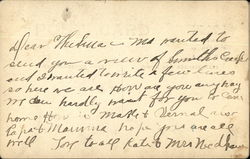 Dear Thelma - Ma wanted to
send you a view of Smiths Creek
and I wanted to write a few lines
so here we are How are you anyway
we can hardly wait for you to come
home How is Mable & Vernal and
Papa & Mamma hope you are all
well Love to all Kate & Mrs